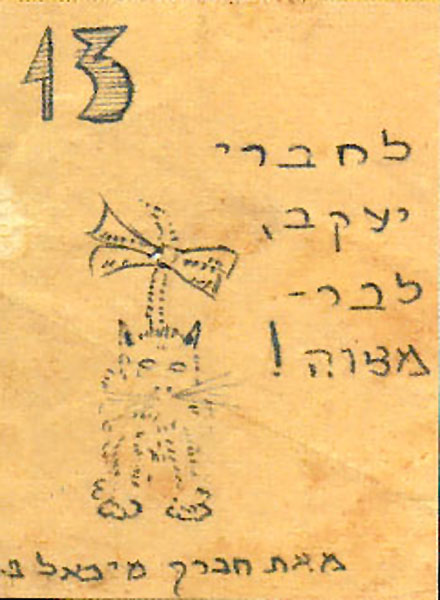 13
לחברי
יעקב,
לבר-
מצוה!
מאת חברך מיכאל